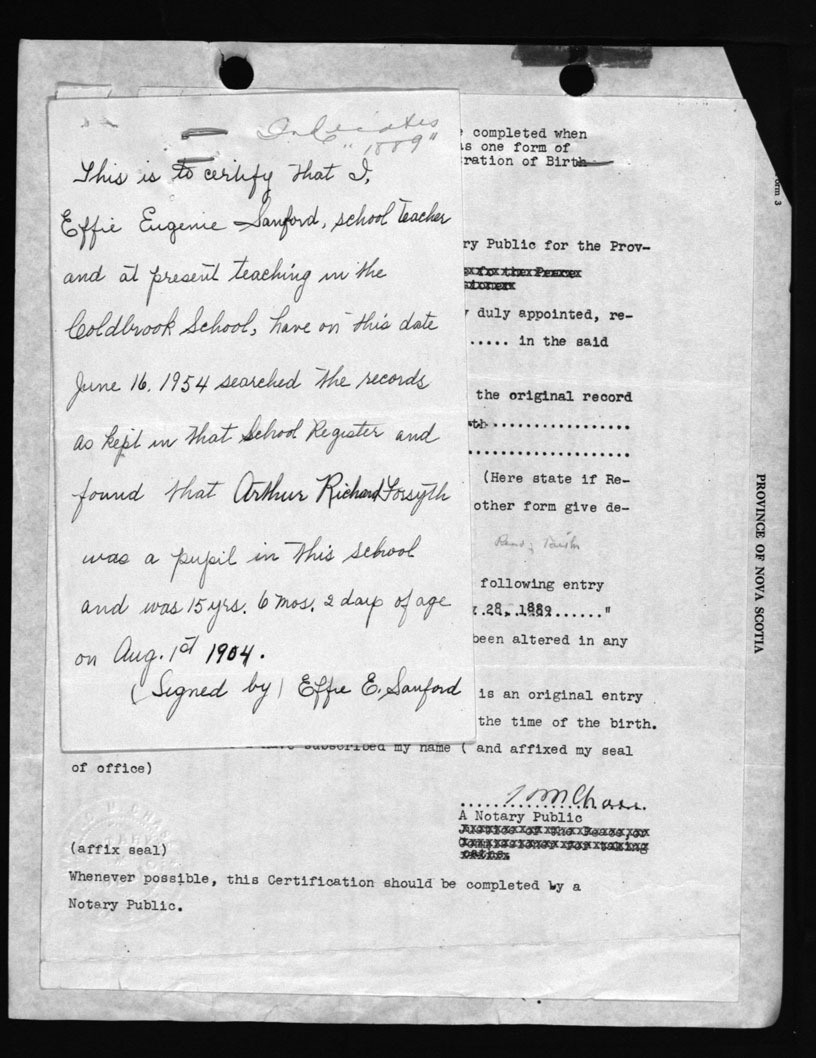 Indicates
"1889"
This is to certify that I,
Effie Eugenie Sanford, school teacher
and at present teaching in the
Coldbrook School, have on this date
June 16, 1954 searched the records
as kept in that School Register and
found that Arthur Richard Forsyth
was a pupil in this school
and was 15 yrs. 6 mos. 2 days of age
on Aug. 1st 1904.
(Signed by) Effie E. Sanford
completed when
as one form of
ration of Birth
orm 3
ry Public for the Prov-
duly appointed, re-
..... in the said
the original record
..................
..................
(Here state if Re-
other form give de-
following entry
28, 1889......"
been altered in any
is an original entry
the time of the birth.
have subscribed my name ( and affixed my seal
of office)
A Notary Public
(affix seal)
Whenever possible, this Certification should be completed by a
Notary Public.
PROVINCE OF NOVA SCOTIA